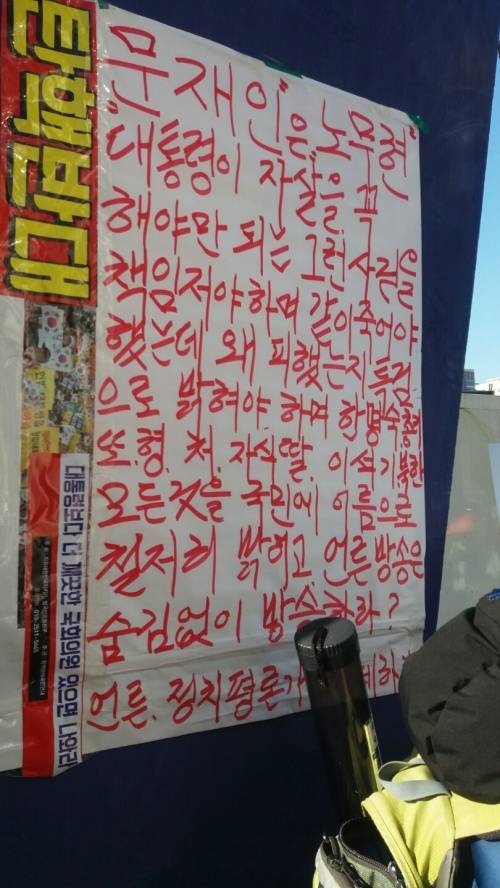 탄핵반대
"문재인"은 "노무현"
대통령이 자살을 꼭
해야만 되는 그런 사람을
책임저야하며 같이죽어야
했는데 왜 피했는지 특검
으로 밝혀야 하며 한명숙총리
또.형.처.자식딸. 이석기북한
모든것을 국민에 이름으로
철저히 밝히고 언른방송은
숨김없이 방송하라?
언른.정치평론가
대통령보다 더 깨끗한 국회의원 있으면 나와라